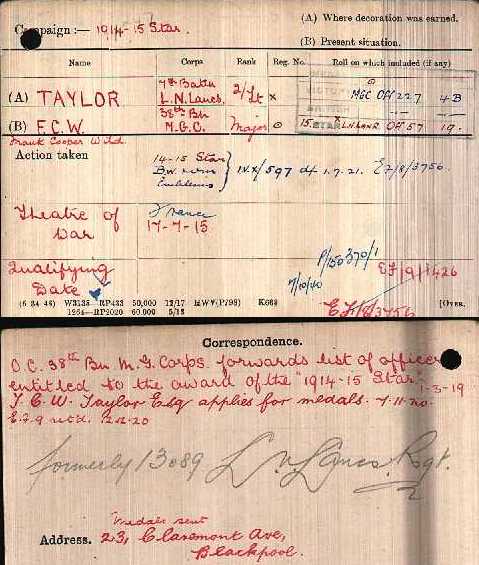 Campaign :— 1914-15 Star.
(A) Where decoration was earned.
(B) Present situation.
Name Corps Rank Reg. No. Roll on which included (if any)
(A) TAYLOR 7th Battn L.N. Lancs. 2/Lt x MGC Off 227 4B
(B) F.C.W. 38th Bn M.G.C. Major 15 STAR L.N. LANR Off 57 19.
Frank Cooper
Action taken 14-15 Star
B.W. Emblems IV.X/597 d/ 1.7.21. E7/8/3756.
Theatre of France
War 17-7-15
P/150370/1
Qualifying 7/10/40 EF/9/1426
Date EF/8/3756
(6 34 46) W3135—RP433 50,000 12/17 HWV(P798) K608 [OVER.
1264—RP2020 60,000 5/18
Correspondence.
O.C. 38th Bn M.G. Corps. forwards list of officers
entitled to the award of the "1914-15 Star." 1-3-19
F. C. W. Taylor Esq applies for medals.
E.F.9 retd.
formerly 13089 L.N. Lancs. Rgt.
Medals sent
Address. 23, Claremont Ave,
Blackpool.